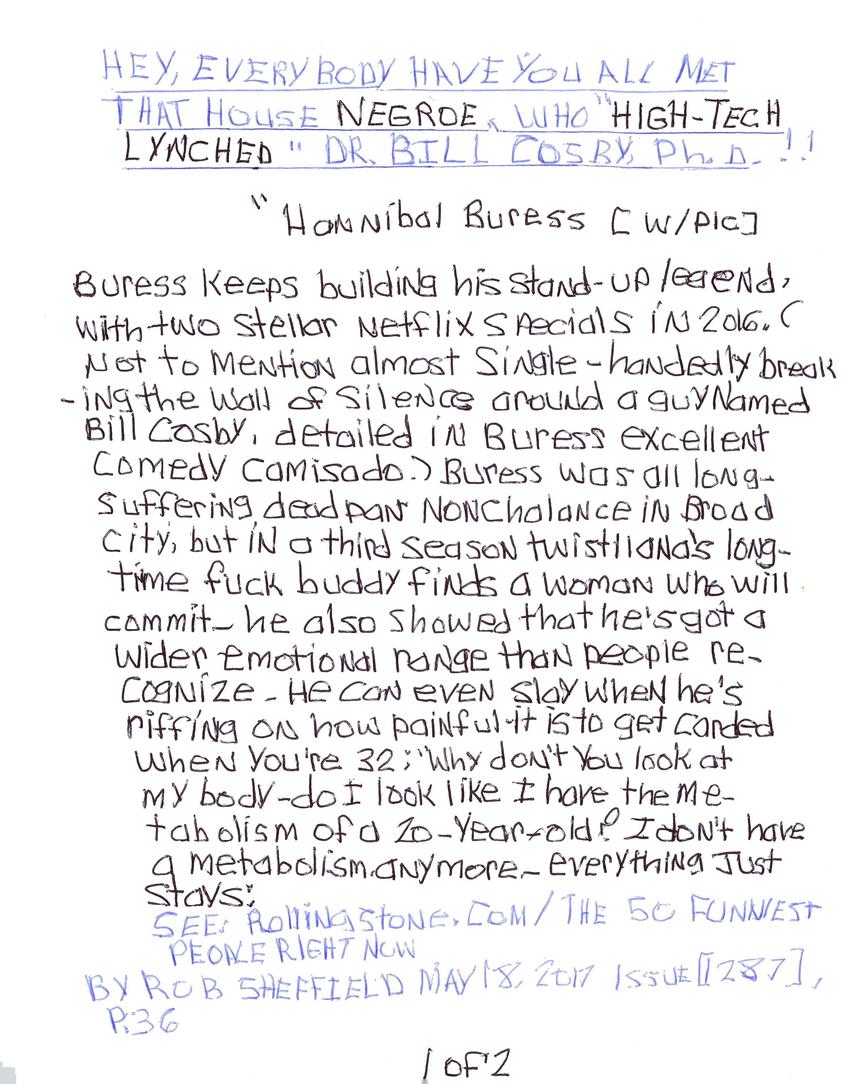 HEY, EVERYBODY HAVE YOU ALL MET
THAT HOUSE NEGROE, WHO "HIGH-TECH
LYNCHED" DR. BILL COSBY, Ph. D. !!
"Hannibal Buress [W/PIC]
Buress Keeps building his stand-up legend,
with two stellar Netflix specials in 2016. (
Not to mention almost single-handedly break
-ing the wall of silence around a guy Named
Bill Cosby, detailed in Buress excellent
Comedy Camisado.) Buress was all long-
suffering deadpan Nonchalance in Broad
City, but in a third season twist Ilana's long-
time fuck buddy finds a woman who will
commit - he also showed that he's got a
wider emotional range than people re-
cognize - He can even slay when he's
riffing on how painful it is to get carded
when You're 32: "Why don't You look at
my body - do I look like I have the me-
tabolism of a 20-Year-old? I don't have
a metabolism anymore - everything just
stays:
SEE: Rollingstone.com/THE 50 FUNNIEST
PEOPLE RIGHT NOW
BY ROB SHEFFIELD MAY 18, 2017 ISSUE [1287],
P.36
1 of 2